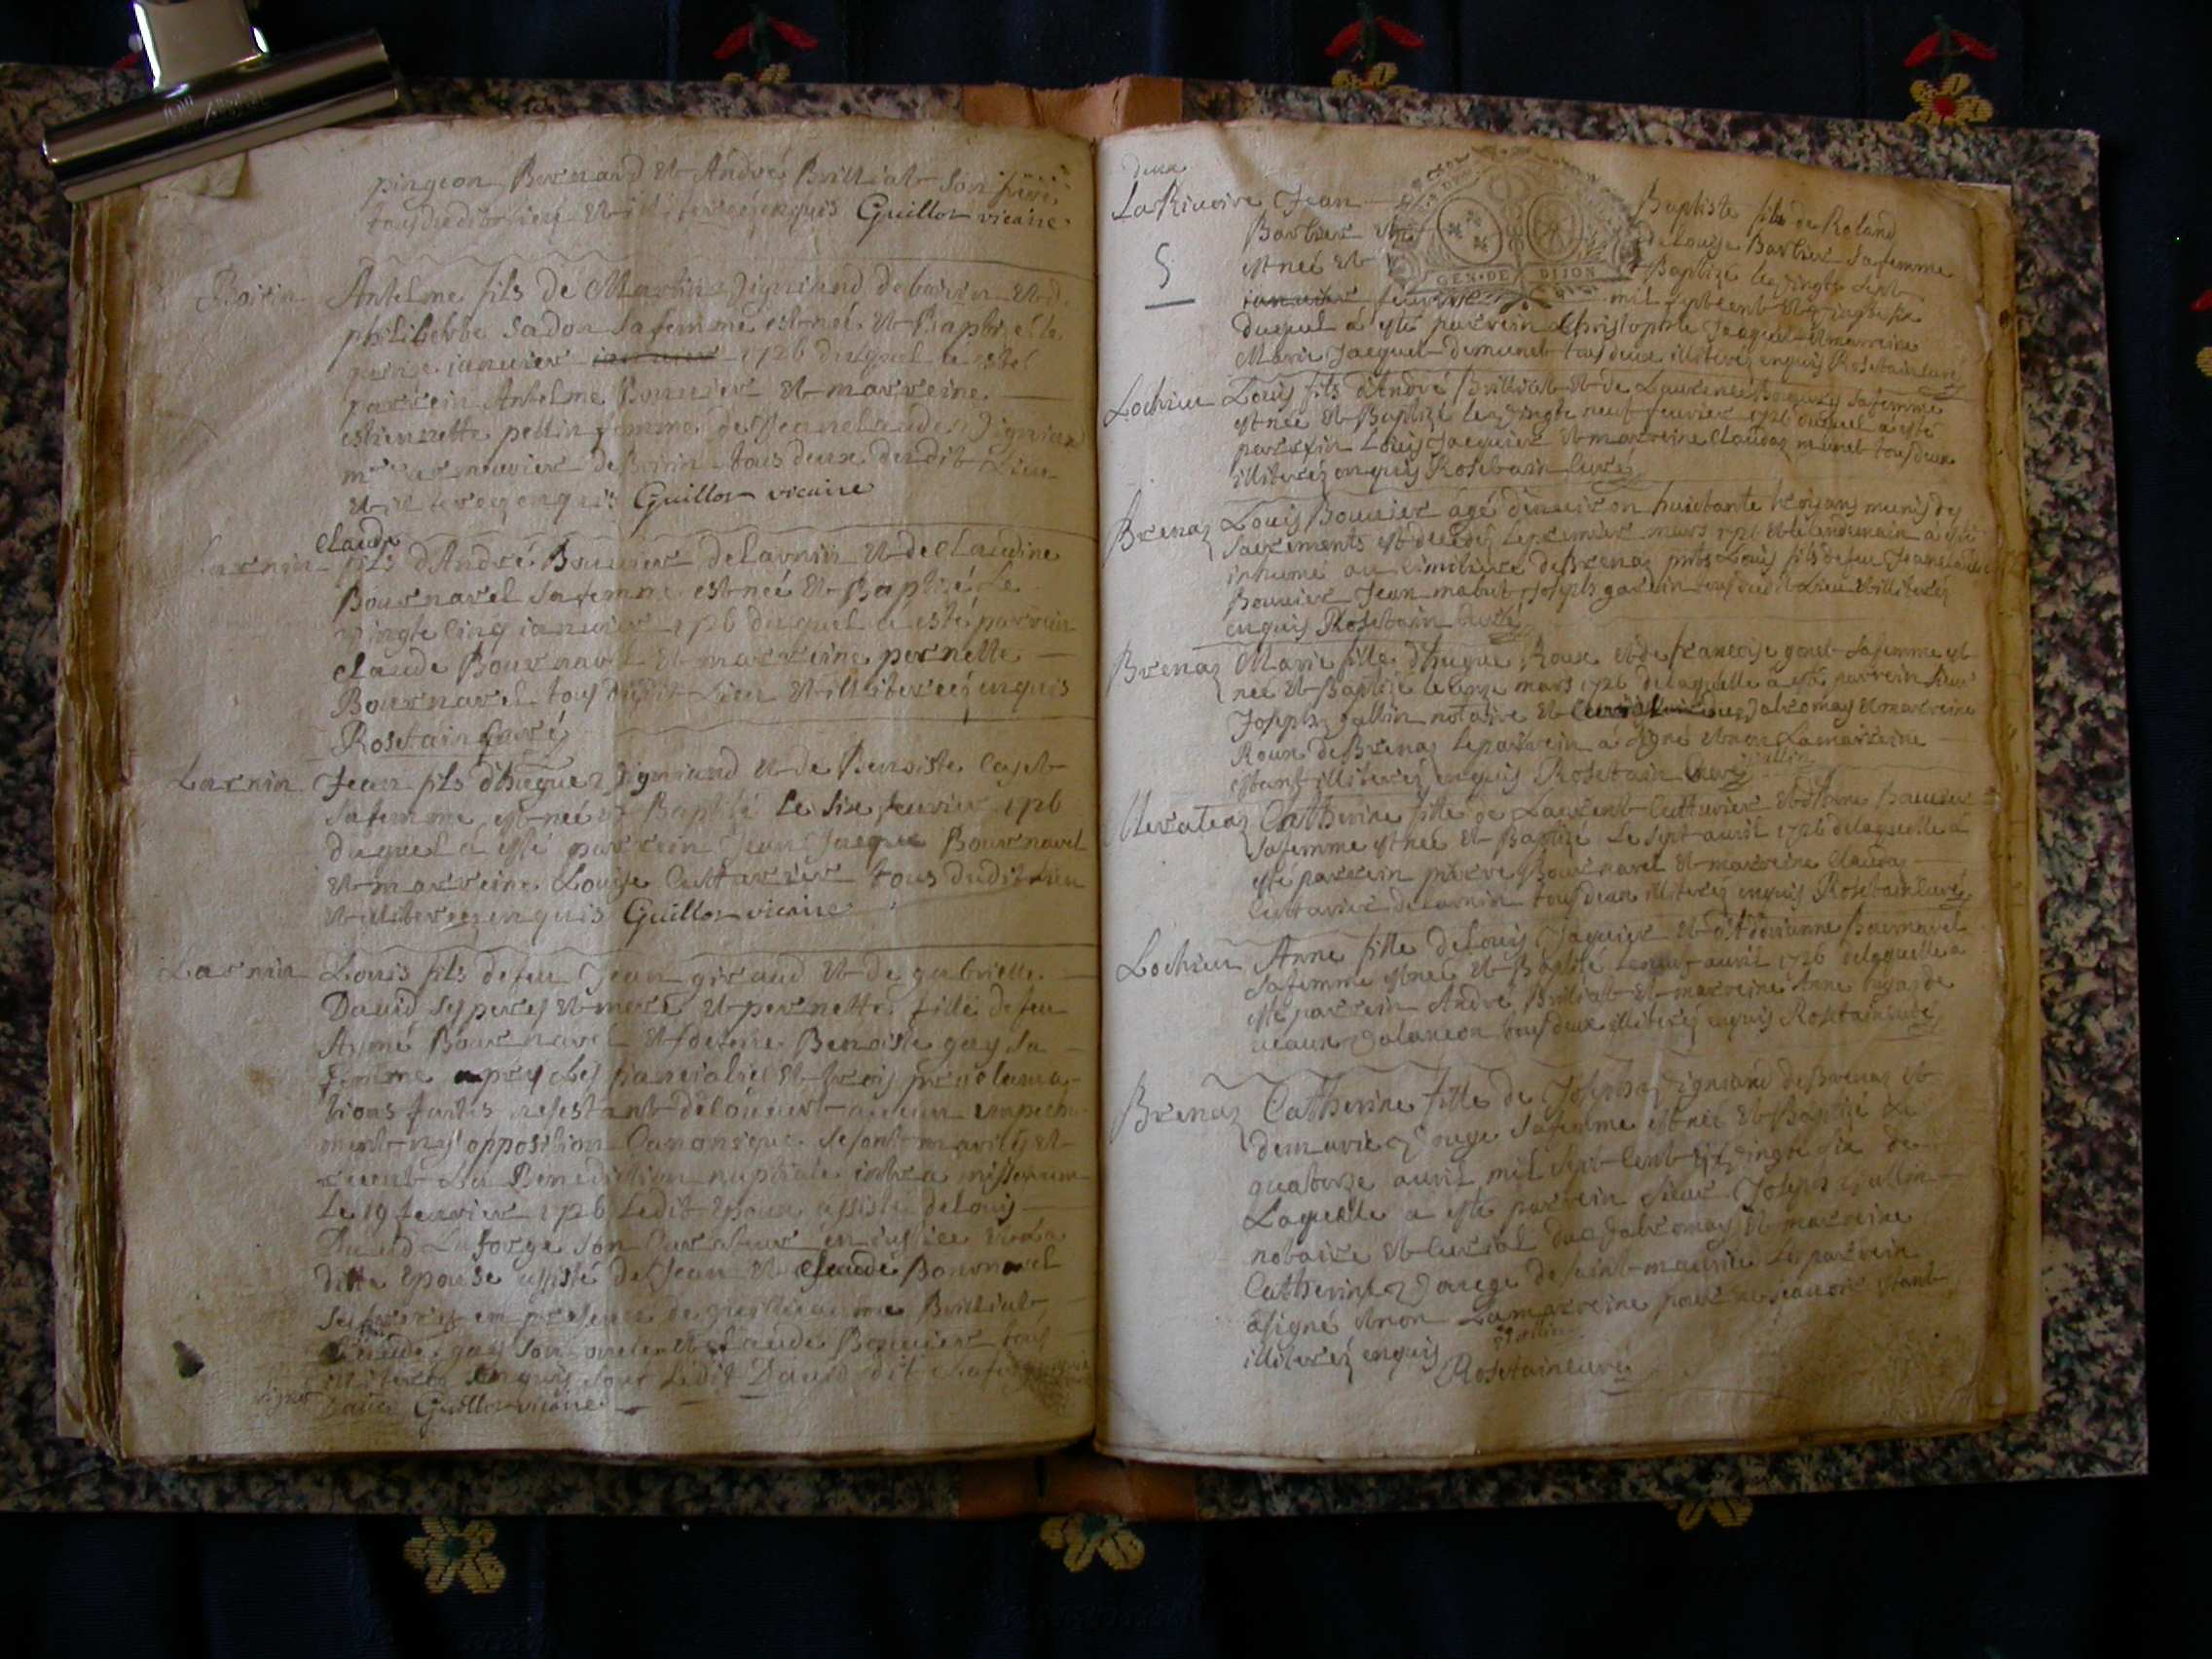 pingeon Bernard et André Brilliat son frère
tous dudit lieu et illiterez enquis Guillot vicaire
Boirin Antelme fils de Martin Vigniand de boirin et de
philiberte Sadon sa femme est né et Baptisé le
quinze ianuier ianuier 1726 duquel a esté
parrein Antelme Bouuier et marreine
estiennette pellin femme de Jeanclaude Vigniand
de Boirin tous deux dudit Lieu
et illiterez enquis Guillot vicaire
claude
Larnin fils d'André Bouuier de Larnin et de Claudine
Bournarel sa femme est né et Baptisé Le
vingte cinq ianuier 1726 duquel a esté parrein
claude Bournarel et marreine pernette
Bournarel tous dudit Lieu et illiterez enquis
Rosetain curé
Larnin Jean fils d'hugue Vigniand et de Benoiste
sa femme est né et Baptisé Le six feurier 1726
duquel a esté parrein Jean Jacque Bournarel
et marreine Louise Cuttarier tous dudit Lieu
et illiterez enquis Guillot vicaire
Larnin Louis fils de feu Jean giraud et de gabrielle
Dauid ses peres et mere et pernette fille de feu
Aymé Bournarel et de Benoiste gay sa
femme apres les fiancialies et trois proclama-
tions faites ne s'estant découuert aucun empeche
ment ny opposition Canonique se sont mariés et
receut La Benediction nuptiale intra missarum
Le 19 feurier 1726 Ledit Epoux assisté de Louis
Dauid Laforge son Curateur en justice et la
ditte Epouse assisté de Jean et claude Bournarel
ses freres en presence de guillaume Brilliat
Claude gay son oncle et claude Bouuier tous
illiterez enquis sauf Ledit Dauid dit Laforge
signé Dauid Guillot vicaire
deux
La Riuoire Jean Baptiste fils de Roland
Barbier et de Louise Barbier sa femme
5
est né et Baptizé le vingte sept
ianuier feurier mil sept cent et vingte six
GEN. DE DIJON
duquel a esté parrein Christophle Jacquet et marreine
Marie Jacquet demunet tous deux illiterez enquis Rosetain curé
Lochieu Louis fils d'André Brilliat et de Laurence sa femme
est né et Baptizé le vingte neuf feurier 1726 duquel a esté
parrein Louis Jacquier et marreine Claudaz munet tous deux
illiterez enquis Rosetain curé
Brenaz Louis Bouuier agé d'enuiron huictante trois ans munis des
sacrements est decedé le premier mars 1726 et le lendemain a esté
inhumé au cimitiere de Brenaz pnts Louis fils de feu Jeanclaude
Bouuier Jean mabut Joseph garin tous dudit Lieu et illiterez
enquis Rosetain curé
Brenaz Marie fille d'hugue Roux et de francoise gout sa femme est
née et Baptizé le onze mars 1726 de laquelle a esté parrein sieur
Joseph gallin notaire et Valromay et marreine
Roux de Brenaz le parrein a signé et non La marreine
estant illiterez enquis Rosetain curé gallin
Catherine fille de Laurent Cuttarier et d'Anne Bouuier
sa femme est née et Baptizé Le sept auril 1726 de laquelle a
esté parrein pierre Bournarel et marreine Claudaz
Cuttarier de Larnin tous deux illiterez enquis Rosetain curé
Lochieu Anne fille de Louis Jaquier et d'Adrianne Bournarel
sa femme est née et Baptizé le neuf auril 1726 de laquelle a
esté parrein André Brilliat et marreine Anne
tous deux illiterez enquis Rosetain curé
Brenaz Catherine fille de Joseph Vigniand de Brenaz et
de marie Vouge sa femme est née et Baptizé Le
quatorze auril mil sept Cent et vingte six de
Laquelle a esté parrein sieur Joseph Gallin
notaire et Curial due Valromay et marreine
Catherine Vouege de saint maurice Le parrein
a signé et non La marreine pour ne sçauoir estant
illiterez enquis Gallin
Rosetain curé